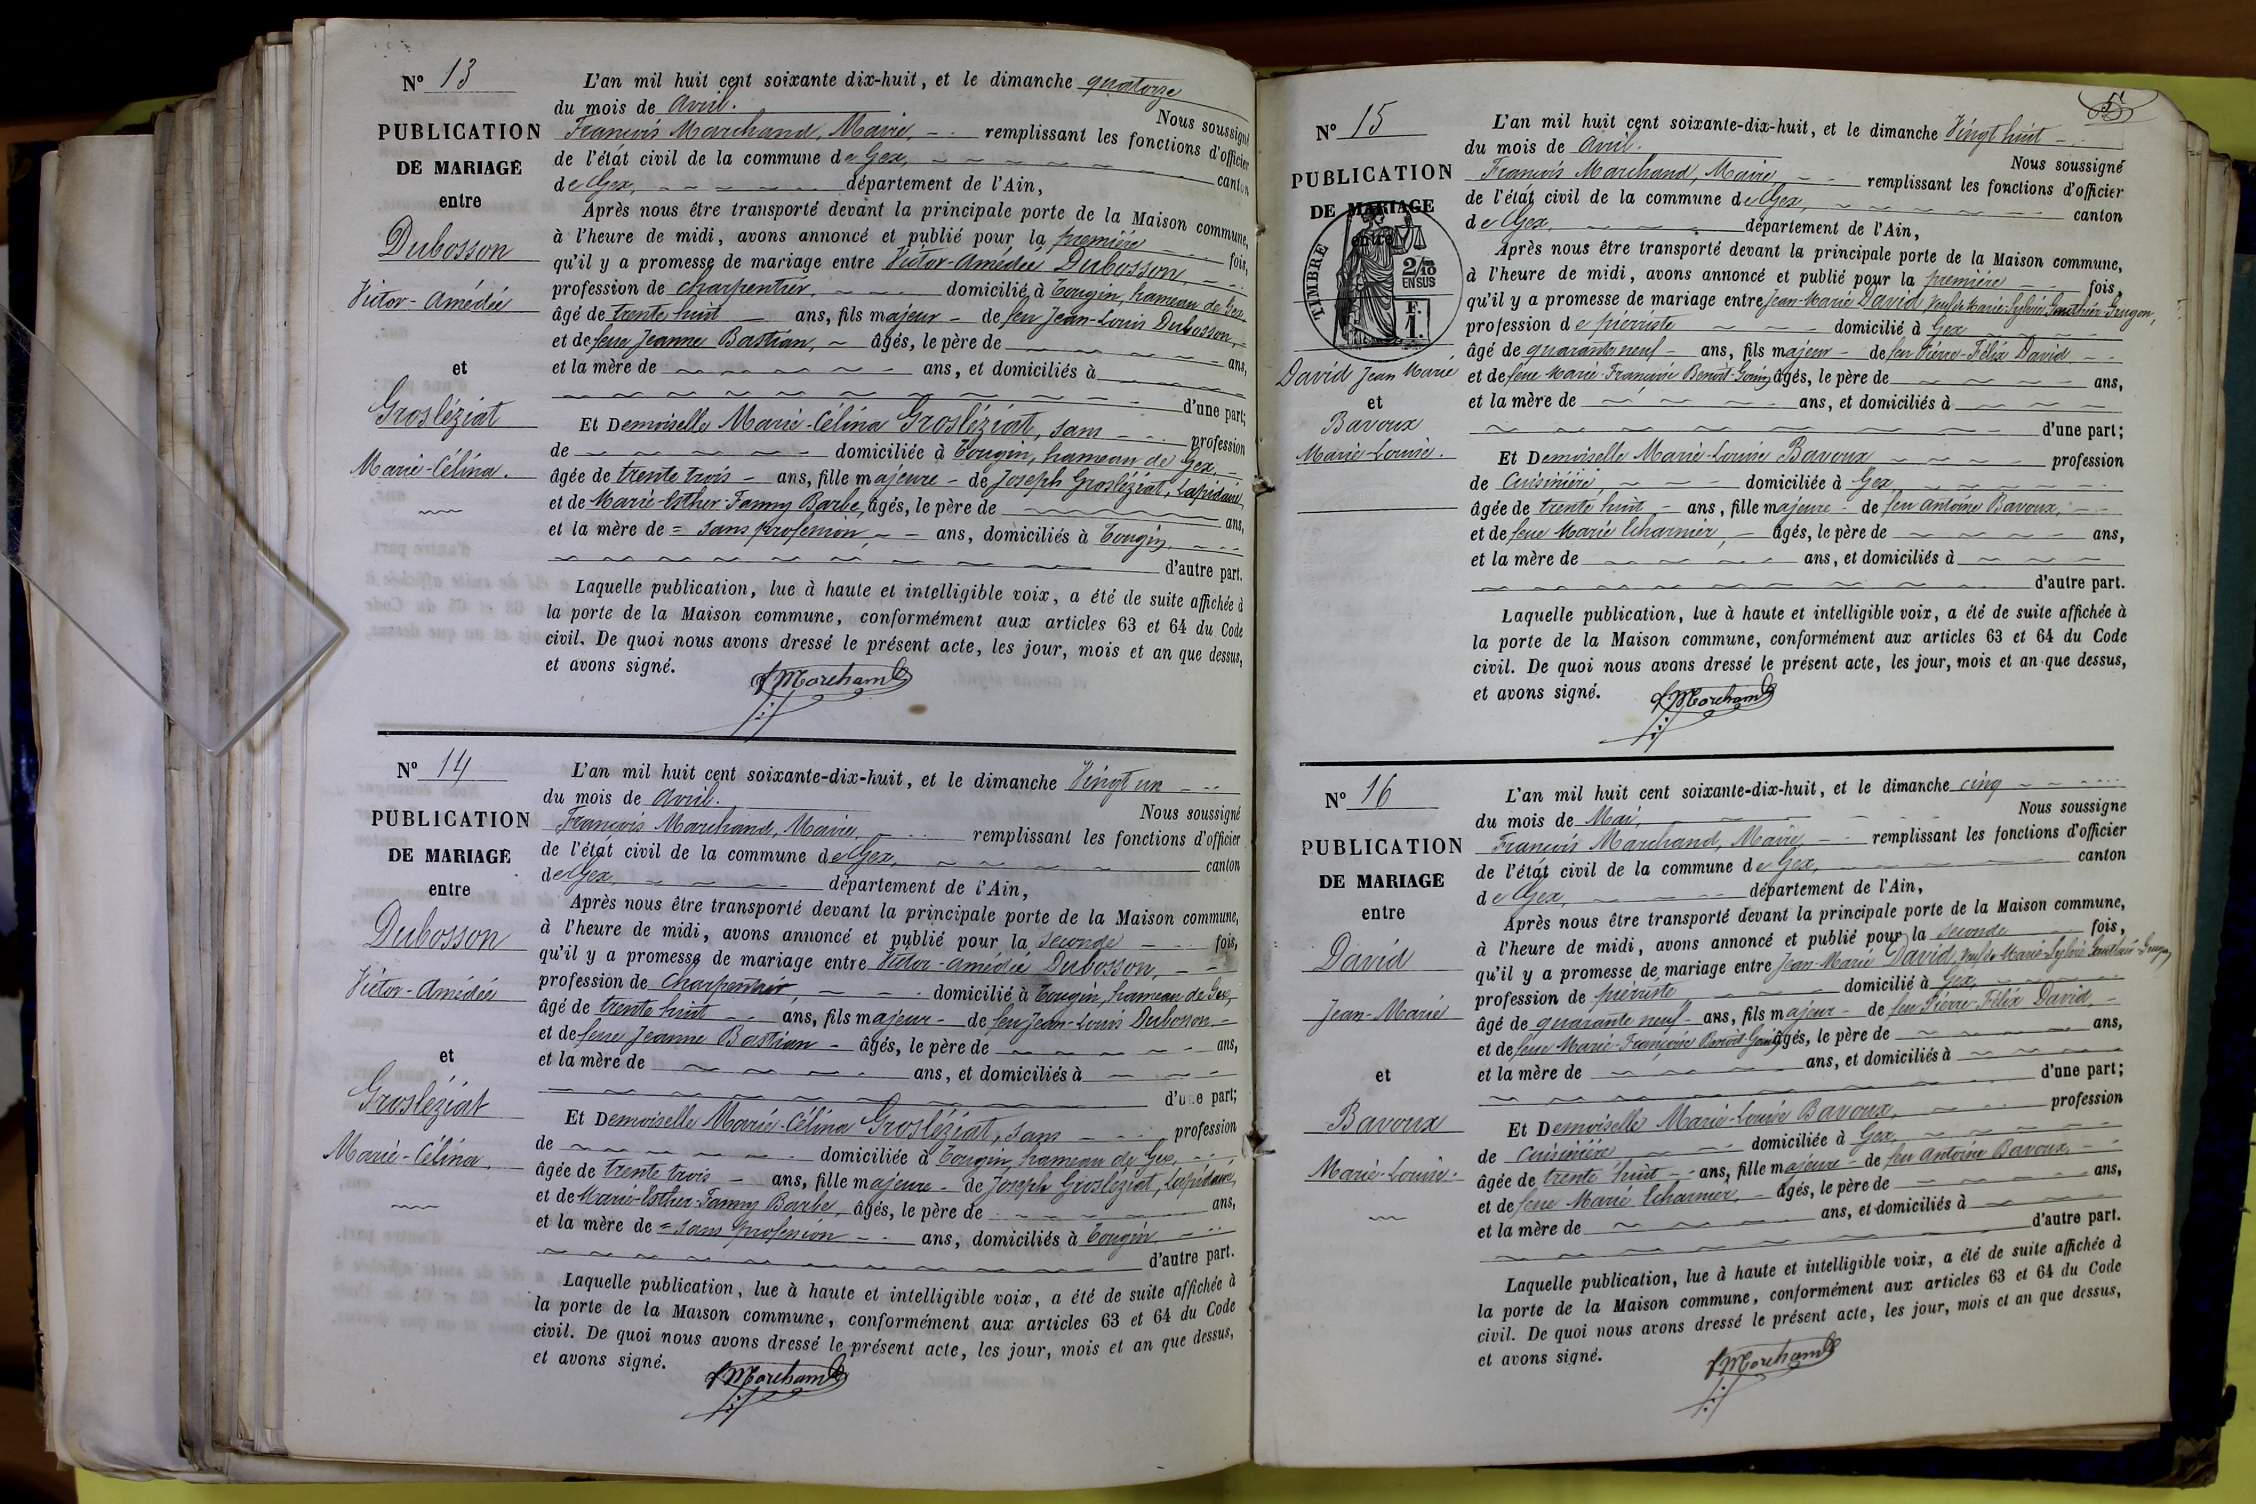 N° 13
PUBLICATION
DE MARIAGE
entre
Dubosson
Victor-Amédée
et
Grosléziat
Marie-Célina.
L'an mil huit cent soixante dix-huit, et le dimanche quatorze
du mois de Avril. Nous soussigné
François Marchand, Maire, remplissant les fonctions d'officier
de l'état civil de la commune de Gex, canton
de Gex, département de l'Ain,
Après nous être transporté devant la principale porte de la Maison commune,
à l'heure de midi, avons annoncé et publié pour la première fois,
qu'il y a promesse de mariage entre Victor-Amédée Dubosson,
profession de charpentier, domicilié à Tougin, hameau de Gex,
âgé de trente huit ans, fils majeur de feu Jean-Louis Dubosson,
et de feue Jeanne Bastian, âgés, le père de ans,
et la mère de ans, et domiciliés à
d'une part;
Et Demoiselle Marie-Célina Grosléziat, sans profession
de domiciliée à Tougin, hameau de Gex,
âgée de trente trois ans, fille majeure de Joseph Grosléziat, Lapidaire,
et de Marie-Esther-Fanny Barbe, âgés, le père de ans,
et la mère de = sans profession, ans, domiciliés à Tougin,
d'autre part.
Laquelle publication, lue à haute et intelligible voix, a été de suite affichée à
la porte de la Maison commune, conformément aux articles 63 et 64 du Code
civil. De quoi nous avons dressé le présent acte, les jour, mois et an que dessus,
et avons signé.
f Marchand
N° 14
PUBLICATION
DE MARIAGE
entre
Dubosson
Victor-Amédée
et
Grosléziat
Marie-Célina.
L'an mil huit cent soixante-dix-huit, et le dimanche Vingt un
du mois de Avril. Nous soussigné
François Marchand, Maire, remplissant les fonctions d'officier
de l'état civil de la commune de Gex, canton
de Gex, département de l'Ain,
Après nous être transporté devant la principale porte de la Maison commune,
à l'heure de midi, avons annoncé et publié pour la seconde fois,
qu'il y a promesse de mariage entre Victor-Amédée Dubosson,
profession de Charpentier, domicilié à Tougin, hameau de Gex,
âgé de trente huit ans, fils majeur de feu Jean-Louis Dubosson
et de feue Jeanne Bastian âgés, le père de ans,
et la mère de ans, et domiciliés à
d'une part;
Et Demoiselle Marie-Célina Grosléziat, sans profession
de domiciliée à Tougin, hameau de Gex,
âgée de trente trois ans, fille majeure de Joseph Grosléziat, Lapidaire,
et de Marie-Esther-Fanny Barbe, âgés, le père de ans,
et la mère de = sans profession ans, domiciliés à Tougin
d'autre part.
Laquelle publication, lue à haute et intelligible voix, a été de suite affichée à
la porte de la Maison commune, conformément aux articles 63 et 64 du Code
civil. De quoi nous avons dressé le présent acte, les jour, mois et an que dessus,
et avons signé.
f Marchand
5
N° 15
PUBLICATION
DE MARIAGE
entre
TIMBRE
2/10
EN SUS
F.
1.
David Jean Marie
et
Bavoux
Marie-Louise.
L'an mil huit cent soixante-dix-huit, et le dimanche Vingt huit
du mois de Avril. Nous soussigné
François Marchand, Maire, remplissant les fonctions d'officier
de l'état civil de la commune de Gex, canton
de Gex, département de l'Ain,
Après nous être transporté devant la principale porte de la Maison commune,
à l'heure de midi, avons annoncé et publié pour la première fois,
qu'il y a promesse de mariage entre Jean-Marie David, veuf de Marie-Sylvie
profession de pierriste domicilié à Gex
âgé de quarante neuf ans, fils majeur de feu Pierre-Félix David
et de feue Marie Françoise Benoit-Gonin âgés, le père de ans,
et la mère de ans, et domiciliés à
d'une part;
Et Demoiselle Marie-Louise Bavoux profession
de Cuisinière, domiciliée à Gex,
âgée de trente huit ans, fille majeure de feu Antoine Bavoux,
et de feue Marie Echarnier, âgés, le père de ans,
et la mère de ans, et domiciliés à
d'autre part.
Laquelle publication, lue à haute et intelligible voix, a été de suite affichée à
la porte de la Maison commune, conformément aux articles 63 et 64 du Code
civil. De quoi nous avons dressé le présent acte, les jour, mois et an que dessus,
et avons signé.
f Marchand
N° 16
PUBLICATION
DE MARIAGE
entre
David
Jean-Marie
et
Bavoux
Marie-Louise.
L'an mil huit cent soixante-dix-huit, et le dimanche cinq
du mois de Mai, Nous soussigné
François Marchand, Maire, remplissant les fonctions d'officier
de l'état civil de la commune de Gex, canton
de Gex, département de l'Ain,
Après nous être transporté devant la principale porte de la Maison commune,
à l'heure de midi, avons annoncé et publié pour la seconde fois,
qu'il y a promesse de mariage entre Jean-Marie David, veuf de Marie-Sylvie
profession de pierriste domicilié à Gex,
âgé de quarante neuf ans, fils majeur de feu Pierre-Félix David,
et de feue Marie-Françoise Benoit-Gonin âgés, le père de ans,
et la mère de ans, et domiciliés à
d'une part;
Et Demoiselle Marie-Louise Bavoux, profession
de cuisinière domiciliée à Gex,
âgée de trente huit ans, fille majeure de feu Antoine Bavoux,
et de feue Marie Echarnier, âgés, le père de ans,
et la mère de ans, et domiciliés à
d'autre part.
Laquelle publication, lue à haute et intelligible voix, a été de suite affichée à
la porte de la Maison commune, conformément aux articles 63 et 64 du Code
civil. De quoi nous avons dressé le présent acte, les jour, mois et an que dessus,
et avons signé.
f Marchand